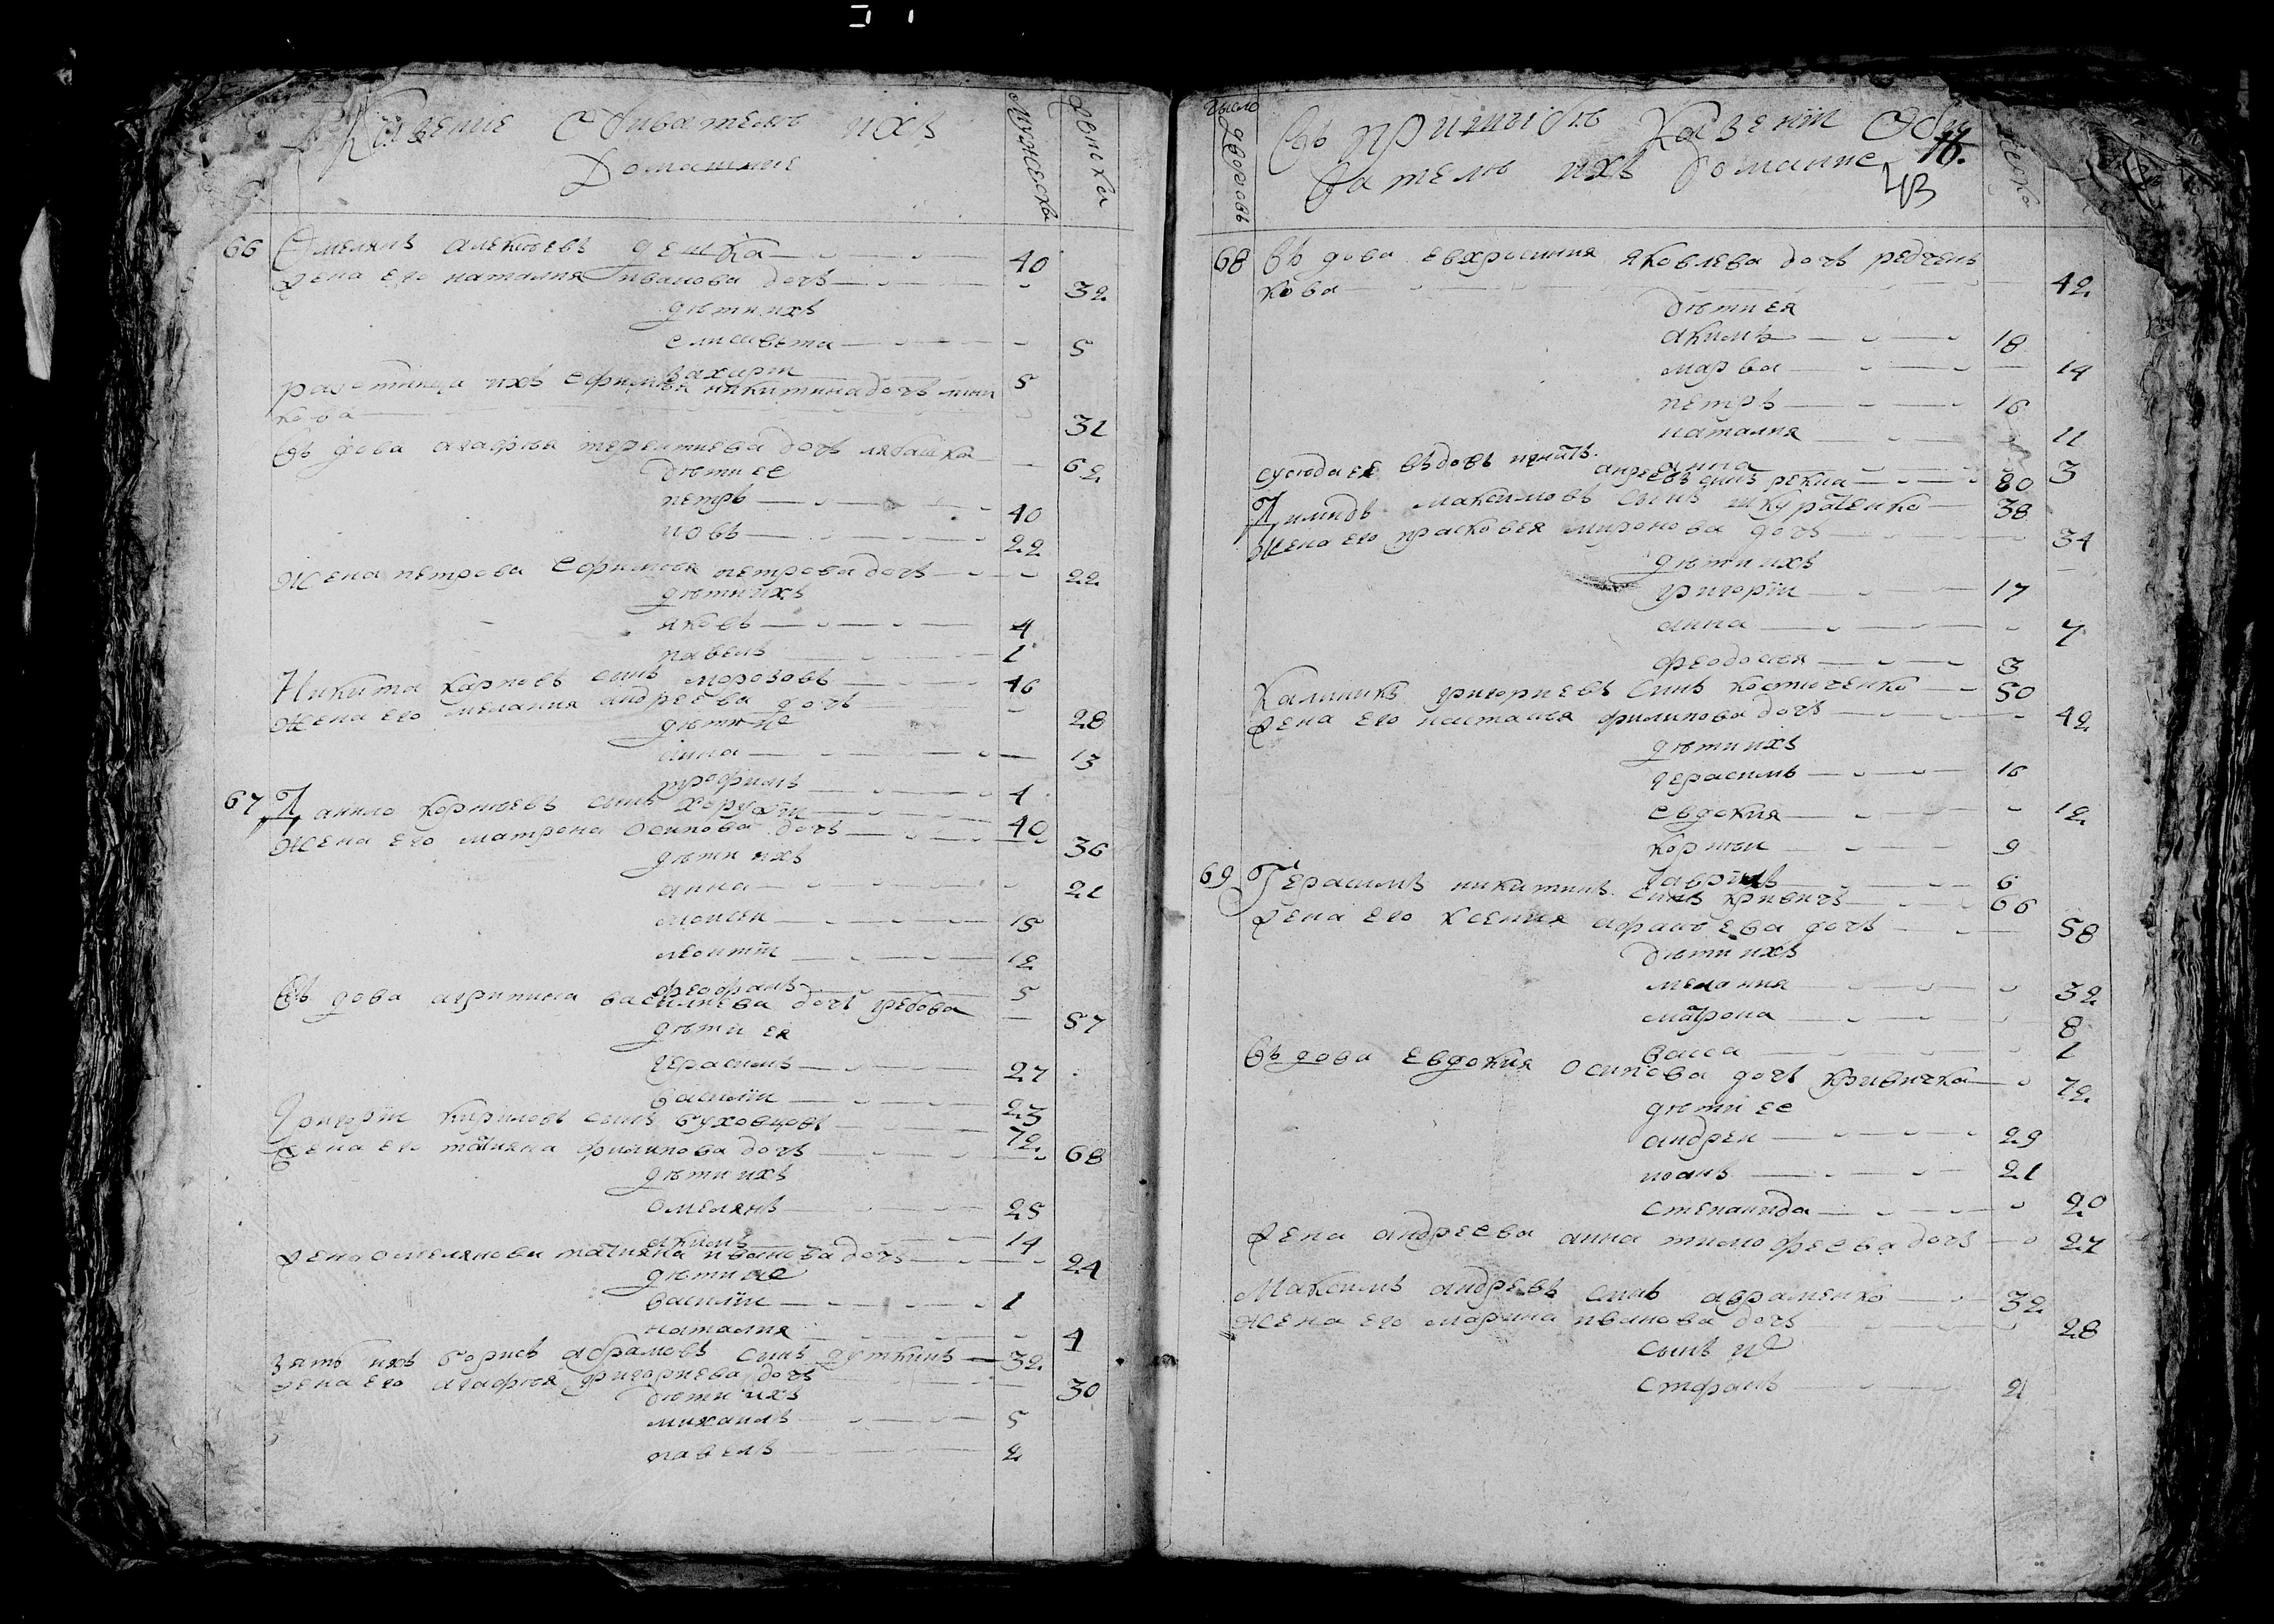 Казение Обивателъ ихъ
Домашние
Мужеска
Женска
66 Омелянъ алексѣевъ дешка 40
Жена его наталия Иванова дочъ 32
дѣти ихъ
елисавета 5
захарии 5
работница ихъ ефимия никитина дочъ
кова 31
Въдова агафия терентиева дочъ лябашка 62
дѣти ее
петръ 40
иовъ 22
Жена петрова Ефимия петрова дочъ 22
дѣти ихъ
яковъ 4
павелъ 1
Никита карповъ синъ морозовъ 46
Жена его мелания андреева дочъ 28
дѣти
анна 13
трофимъ 4
67 Данило корнѣевъ синъ хоружии 40
Жена его матрона Осипова дочъ 36
дѣти ихъ
анна 21
моисеи 15
леонтии 12
феофанъ 5
Въдова агрипина василиева дочъ гредова 57
дѣти ея
герасимъ 27
василии 23
Григории кириловъ синъ буховцовъ 72
Жена его татияна филипова дочъ 68
дѣти ихъ
Омелянъ 25
акимъ 14
Жена омелянова татияна иванова дочъ 24
дѣти
василии 1
наталия 4
Зять ихъ борисъ абрамовъ синъ дуткинъ 32
Жена его агафия григориева дочъ 30
дѣти ихъ
михаилъ 5
павелъ 2
число
дворовъ
Въ причѣтъ Казении Оби
вателъ ихъ домание
43
68 Въдова евхросиния яковлева дочъ редчен
кова 42
дѣти ея
акимъ 18
марва 14
петръ 16
наталия 11
анна 3
сусѣда ея въдовъ игнатъ
андреевъ синъ рекша 80
Димидъ максимовъ синъ шкуратенко 38
Жена его прасковея миронова дочъ 34
дѣти ихъ
григории 17
анна 7
феодосия 3
Калиникъ григориевъ синъ костюченко 50
Жена его настасия филипова дочъ 42
дѣти ихъ
герасимъ 16
евдокия 12
корнѣи 9
гаврилъ 6
69 Герасимъ никитинъ синъ кривичъ 66
Жена его ксения афанѣева дочъ 58
дѣти ихъ
мелания 32
матрона 8
васса 1
Въдова евдокия осипова дочъ кривичка 72
дѣти ее
андреи 29
иоанъ 21
степанида 20
Жена андреева анна тимофеева дочъ 27
Максимъ андреевъ синъ авраменко 32
Жена его марина иванова дочъ 28
синъ
стефанъ 2